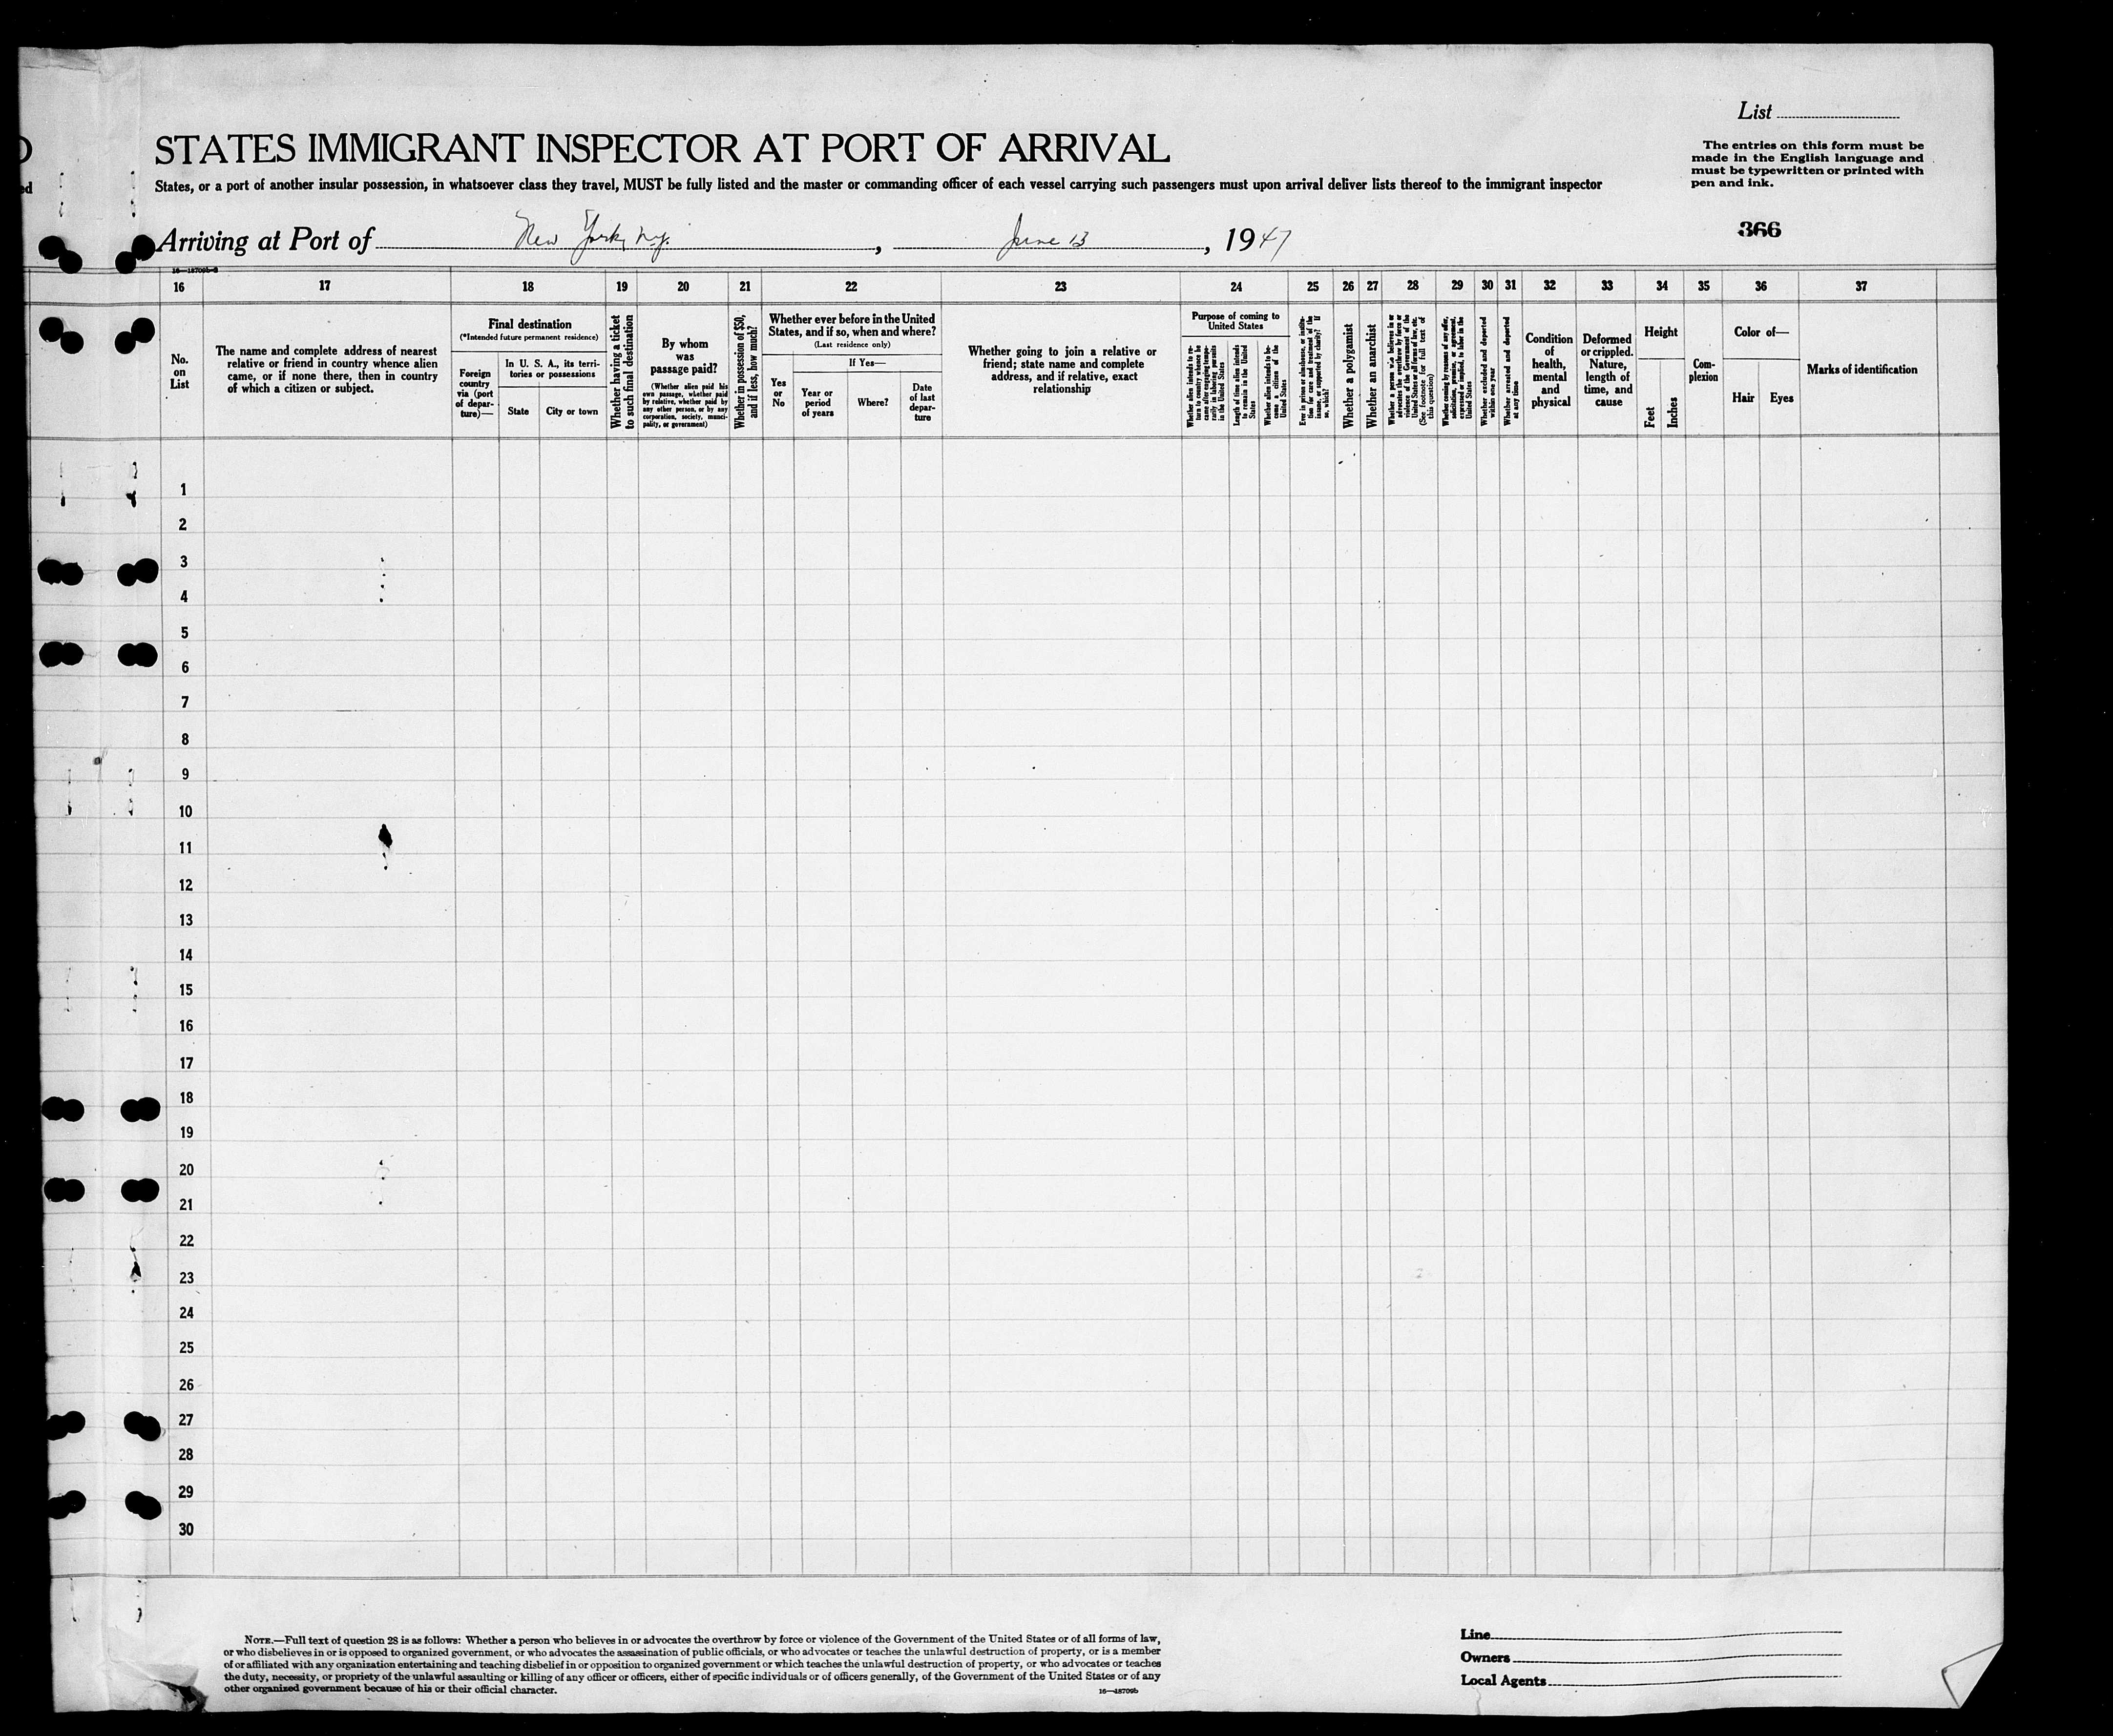 List
STATES IMMIGRANT INSPECTOR AT PORT OF ARRIVAL
The entries on this form must be
made in the English language and
must be typewritten or printed with
pen and ink.
ed
States, or a port of another insular possession, in whatsoever class they travel, MUST be fully listed and the master or commanding officer of each vessel carrying such passengers must upon arrival deliver lists thereof to the immigrant inspector
Arriving at Port of New York, N.Y., June 13, 1947
366
16—18709b-3
16 17 18 19 20 21 22 23 24 25 26 27 28 29 30 31 32 33 34 35 36 37
No.
on
List
The name and complete address of nearest
relative or friend in country whence alien
came, or if none there, then in country
of which a citizen or subject.
Final destination
(*Intended future permanent residence)
Foreign
country
via (port
of depar-
ture)—
In U. S. A., its terri-
tories or possessions
State
City or town
Whether having a ticket
to such final destination
By whom
was
passage paid?
(Whether alien paid his
own passage, whether paid
by relative, whether paid by
any other person, or by any
corporation, society, munici-
pality, or government)
Whether in possession of $50,
and if less, how much?
Whether ever before in the United
States, and if so, when and where?
(Last residence only)
Yes
or
No
If Yes—
Year or
period
of years
Where?
Date
of last
depar-
ture
Whether going to join a relative or
friend; state name and complete
address, and if relative, exact
relationship
Purpose of coming to
United States
Whether alien intends to re-
turn to country whence he
came after engaging tempo-
rarily in laboring pursuits
in the United States
Length of time alien intends
to remain in the United
States
Whether alien intends to be-
come a citizen of the
United States
Ever in prison or almshouse, or institu-
tion for care and treatment of the
insane, or supported by charity? If
so, which?
Whether a polygamist
Whether an anarchist
Whether a person who believes in or
advocates the overthrow by force or
violence of the Government of the
United States or all forms of law, etc.
(See footnote for full text of
this question)
Whether coming by reason of any offer,
solicitation, promise, or agreement,
expressed or implied, to labor in the
United States
Whether excluded and deported
within one year
Whether arrested and deported
at any time
Condition
of
health,
mental
and
physical
Deformed
or crippled.
Nature,
length of
time, and
cause
Height
Feet
Inches
Com-
plexion
Color of—
Hair
Eyes
Marks of identification
1
2
3
4
5
6
7
8
9
10
11
12
13
14
15
16
17
18
19
20
21
22
23
24
25
26
27
28
29
30
NOTE.—Full text of question 28 is as follows: Whether a person who believes in or advocates the overthrow by force or violence of the Government of the United States or of all forms of law,
or who disbelieves in or is opposed to organized government, or who advocates the assassination of public officials, or who advocates or teaches the unlawful destruction of property, or is a member
of or affiliated with any organization entertaining and teaching disbelief in or opposition to organized government or which teaches the unlawful destruction of property, or who advocates or teaches
the duty, necessity, or propriety of the unlawful assaulting or killing of any officer or officers, either of specific individuals or of officers generally, of the Government of the United States or of any
other organized government because of his or their official character.
16—18709b
Line
Owners
Local Agents